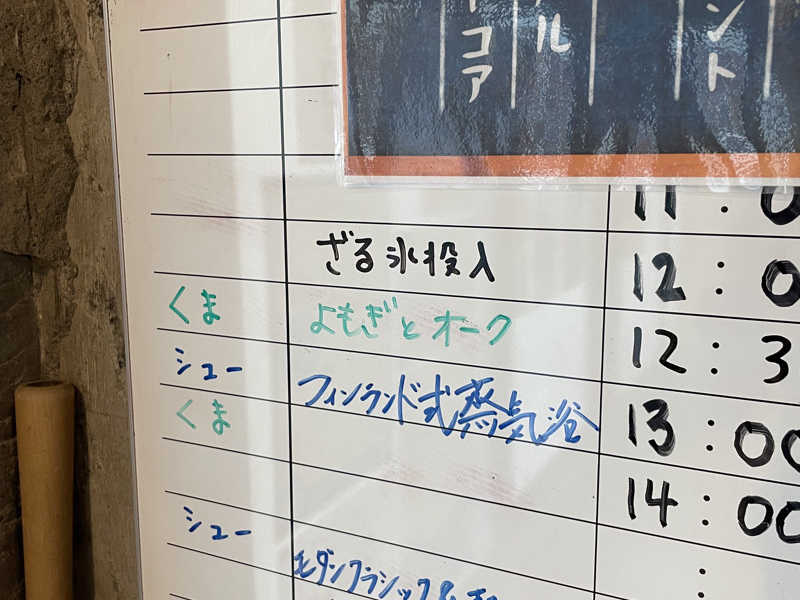 コア
ル
ント
11:0
ざる氷投入
12:0
くま
よもぎとオーク
12:3
シュー
フィンランド式蒸気浴
くま
13:00
14:00
シュー
モダンクラシック